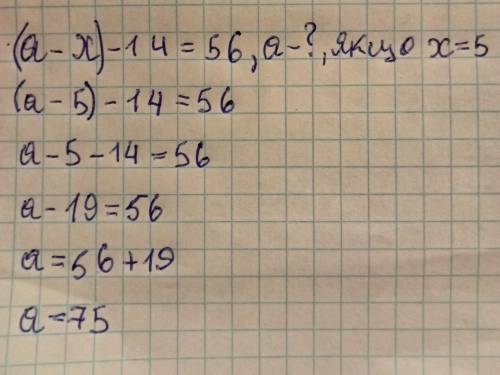 (a - x) - 14 = 56, a - ?, якщо x = 5
(a - 5) - 14 = 56
a - 5 - 14 = 56
a - 19 = 56
a = 56 + 19
a = 75